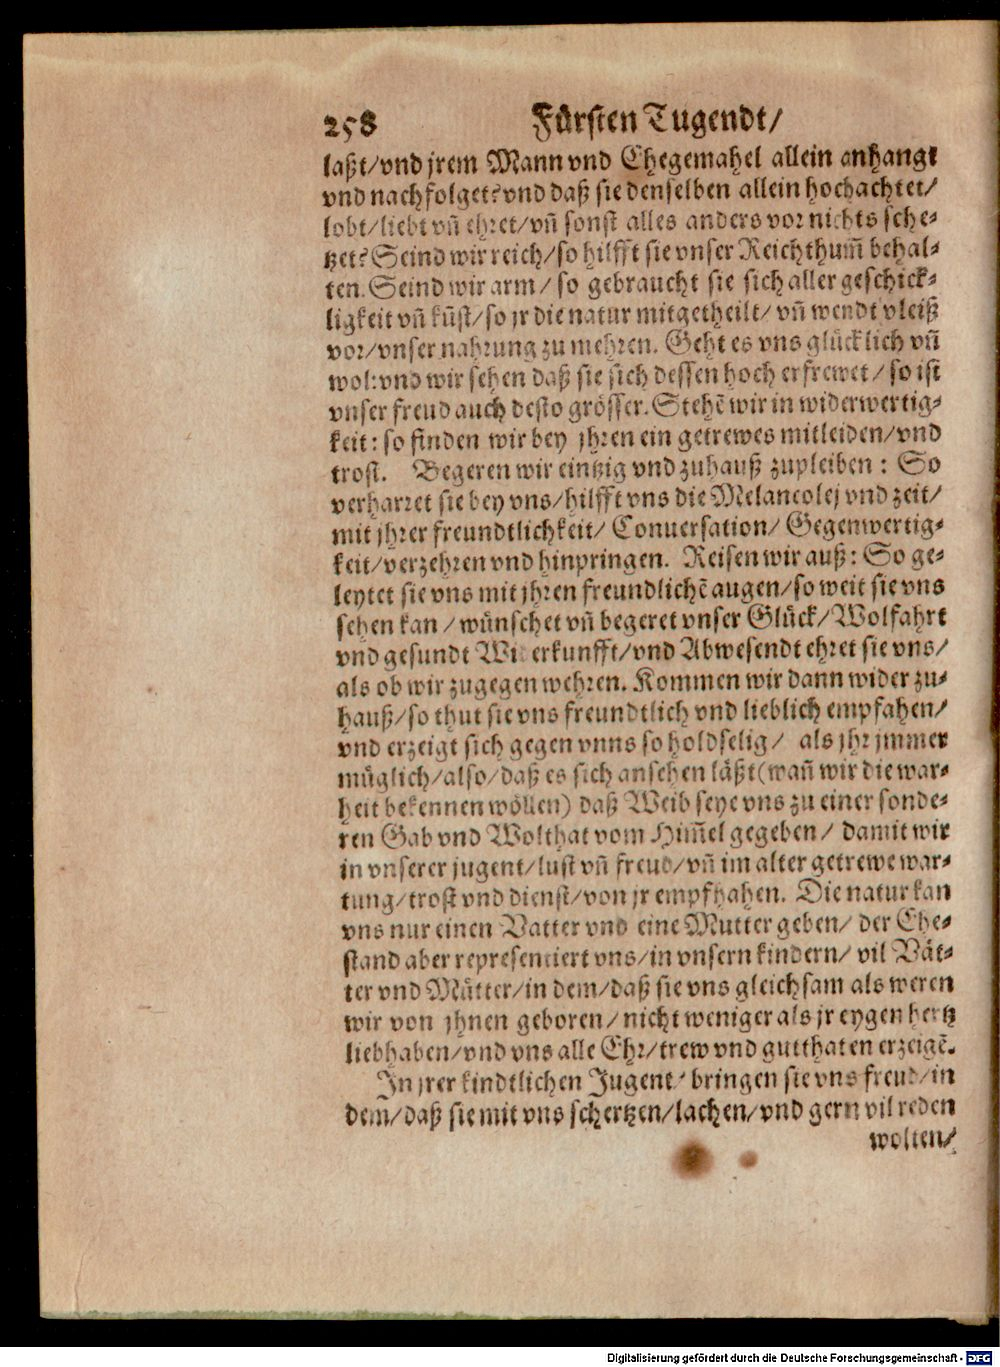 258 Fürsten Tugendt/
laßt/vnd jrem Mann vnd Ehegemahel allein anhangt
vnd nachfolget? vnd daß sie denselben allein hochachtet/
lobt/liebt vñ ehret/vñ sonst alles anders vor nichts sche-
tzet? Seind wir reich/so hilfft sie vnser Reichthum̃ behal-
ten. Seind wir arm/so gebraucht sie sich aller geschick-
ligkeit vñ kũst/so jr die natur mitgetheilt/vñ wendt vleiß
vor/vnser nahrung zu mehren. Geht es vns glücklich vñ
wol: vnd wir sehen daß sie sich dessen hoch erfrewet/so ist
vnser freud auch desto grösser. Stehẽ wir in widerwertig-
keit: so finden wir bey jhren ein getrewes mitleiden/vnd
trost. Begeren wir eintzig vnd zuhauß zupleiben: So
verharret sie bey vns/hilfft vns die Melancolej vnd zeit/
mit jhrer freundtlichkeit/Conuersation/Gegenwertig-
keit/verzehren vnd hinpringen. Reisen wir auß: So ge-
leytet sie vns mit jhren freundlichẽ augen/so weit sie vns
sehen kan/wünschet vñ begeret vnser Glück/Wolfahrt
vnd gesundt Widerkunfft/vnd Abwesendt ehret sie vns/
als ob wir zugegen wehren. Kommen wir dann wider zu-
hauß/so thut sie vns freundtlich vnd lieblich empfahen/
vnd erzeigt sich gegen vnns so holdselig/ als jhr jmmer
müglich/also/daß es sich ansehen läßt (wañ wir die war-
heit bekennen wöllen) daß Weib seye vns zu einer sonde-
ren Gab vnd Wolthat vom Him̃el gegeben/ damit wir
in vnserer jugent/lust vñ freud/vñ im alter getrewe war-
tung/trost vnd dienst/von jr empfhahen. Die natur kan
vns nur einen Vatter vnd eine Mutter geben/ der Ehe-
stand aber representiert vns/in vnsern kindern/ vil Vät-
ter vnd Mütter/in dem/daß sie vns gleichsam als weren
wir von jhnen geboren/nicht weniger als jr eygen hertz
liebhaben/vnd vns alle Ehr/trew vnd gutthaten erzeigẽ.
In jrer kindtlichen Jugent/bringen sie vns freud/in
dem/daß sie mit vns schertzen/lachen/vnd gern vil reden
wolten/
Digitalisierung gefördert durch die Deutsche Forschungsgemeinschaft - DFG